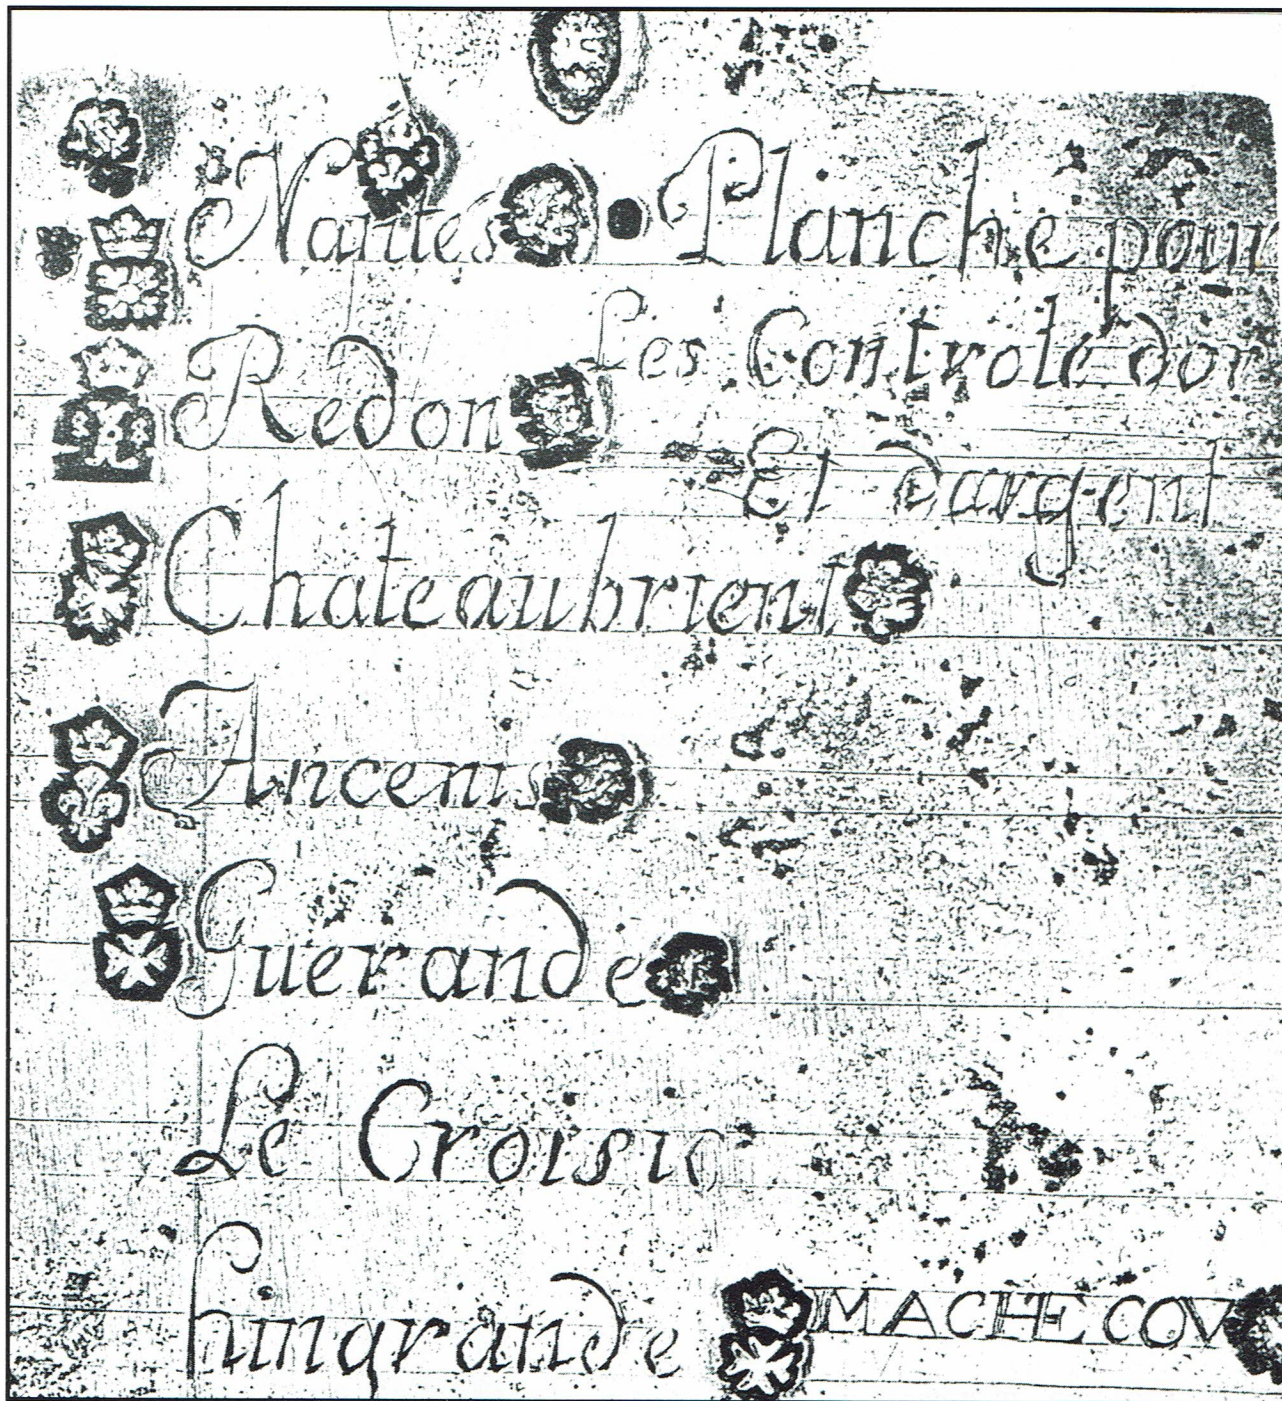 Nantes Planche pour
Les Controle dor
Redon
Et dargent
Chateaubrient
Ancenis
Guerande
Le Croisic
hingrande MACHECOV